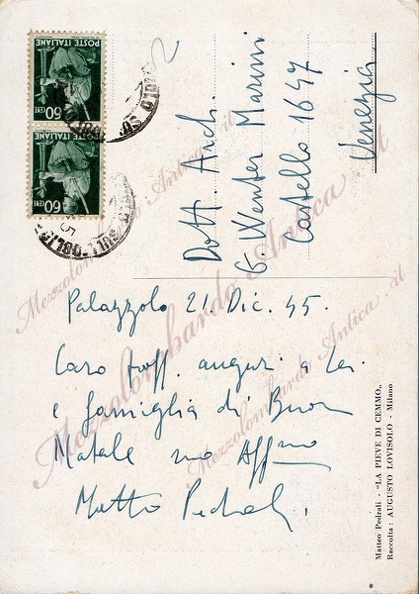 POSTE ITALIANE
CENT 60
POSTE ITALIANE
CENT 60
Dott. Arch.
G. Wenter Marini
Castello 1647
Venezia
Palazzolo 21. Dic. 45.
Caro Proff. auguri a Lei
e famiglia di Buon
Natale suo Affmo
Matteo Pedrali.
Matteo Pedrali - "LA PIEVE DI CEMMO„
Raccolta: AUGUSTO LOVISOLO - Milano
Mezzolombardo Antica .it
Mezzolombardo Antica .it
Mezzolombardo Antica .it